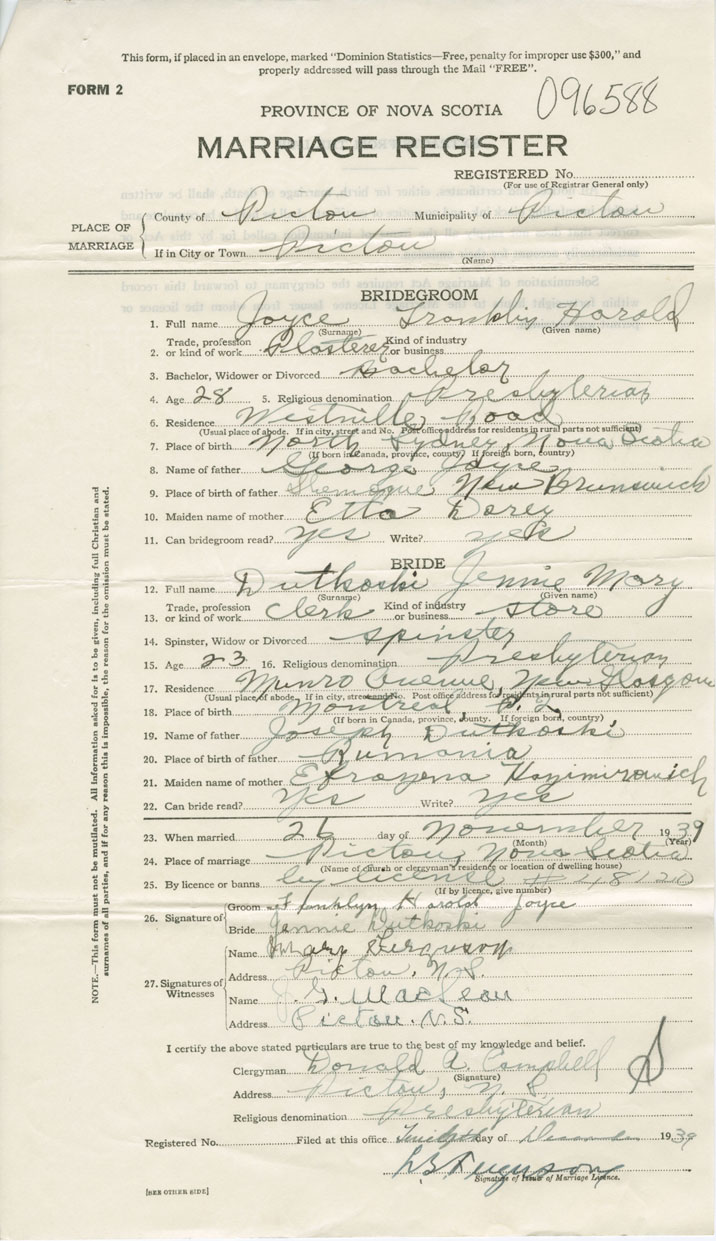 This form, if placed in an envelope, marked "Dominion Statistics—Free, penalty for improper use $300," and
properly addressed will pass through the Mail "FREE".
FORM 2
096588
PROVINCE OF NOVA SCOTIA
MARRIAGE REGISTER
REGISTERED No.
(For use of Registrar General only)
PLACE OF MARRIAGE
County of Pictou Municipality of Pictou
If in City or Town Pictou
(Name)
BRIDEGROOM
1. Full name Joyce Franklin Harold
(Surname) (Given name)
2. Trade, profession or kind of work Plasterer Kind of industry or business
3. Bachelor, Widower or Divorced Bachelor
4. Age 28 5. Religious denomination Presbyterian
6. Residence Westville Road
(Usual place of abode. If in city, street and No. Post office address for residents in rural parts not sufficient)
7. Place of birth North Sydney, Nova Scotia
(If born in Canada, province, county) If foreign born, country)
8. Name of father George Joyce
9. Place of birth of father Shemogue New Brunswick
10. Maiden name of mother Etta Dorey
11. Can bridegroom read? yes Write? yes
BRIDE
12. Full name Dutkoski Jennie Mary
(Surname) (Given name)
13. Trade, profession or kind of work Clerk Kind of industry or business store
14. Spinster, Widow or Divorced spinster
15. Age 23 16. Religious denomination Presbyterian
17. Residence Munro Avenue, New Glasgow
(Usual place of abode. If in city, street and No. Post office address for residents in rural parts not sufficient)
18. Place of birth Montreal, P. Q.
(If born in Canada, province, county. If foreign born, country)
19. Name of father Joseph Dutkoski
20. Place of birth of father Rumania
21. Maiden name of mother Efrozena Hazimirowich
22. Can bride read? Yes Write? yes
23. When married 26 day of November 1939
(Month) (Year)
24. Place of marriage Pictou, Nova Scotia
(Name of church or clergyman's residence or location of dwelling house)
25. By licence or banns by license # 48120
(If by licence, give number)
26. Signature of
Groom Franklyn Harold Joyce
Bride Jennie Dutkoski
27. Signatures of Witnesses
Name Mary Ferguson
Address Pictou, N.S.
Name J. G. MacLean
Address Pictou. N.S.
I certify the above stated particulars are true to the best of my knowledge and belief.
Clergyman Donald A. Campbell
(Signature)
Address Pictou, N. S.
Religious denomination Presbyterian
Registered No. Filed at this office Twelfth day of December 1939
Ferguson
Signature of Issuer of Marriage Licence.
[SEE OTHER SIDE]
NOTE.—This form must not be mutilated. All information asked for is to be given, including full Christian and
surnames of all parties, and if for any reason this is impossible, the reason for the omission must be stated.